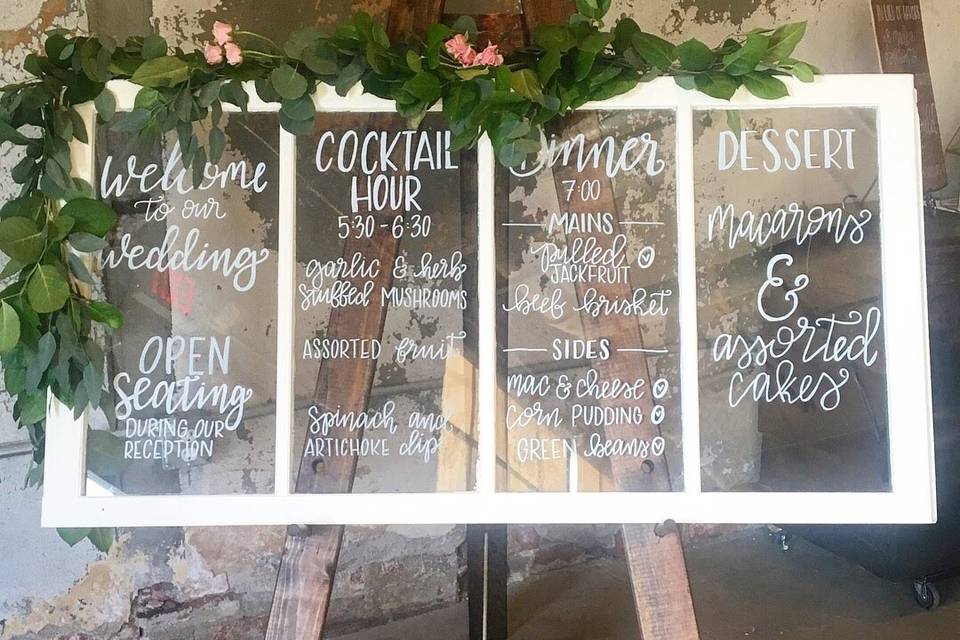 Welcome
to our
wedding
OPEN
Seating
DURING OUR
RECEPTION
COCKTAIL
HOUR
5:30-6:30
garlic & herb
stuffed MUSHROOMS
ASSORTED fruit
Spinach and
ARTICHOKE dip
Dinner
7:00
MAINS
pulled
JACKFRUIT
beef brisket
SIDES
mac & cheese
Corn PUDDING
GREEN beans
DESSERT
macarons
&
assorted
cakes